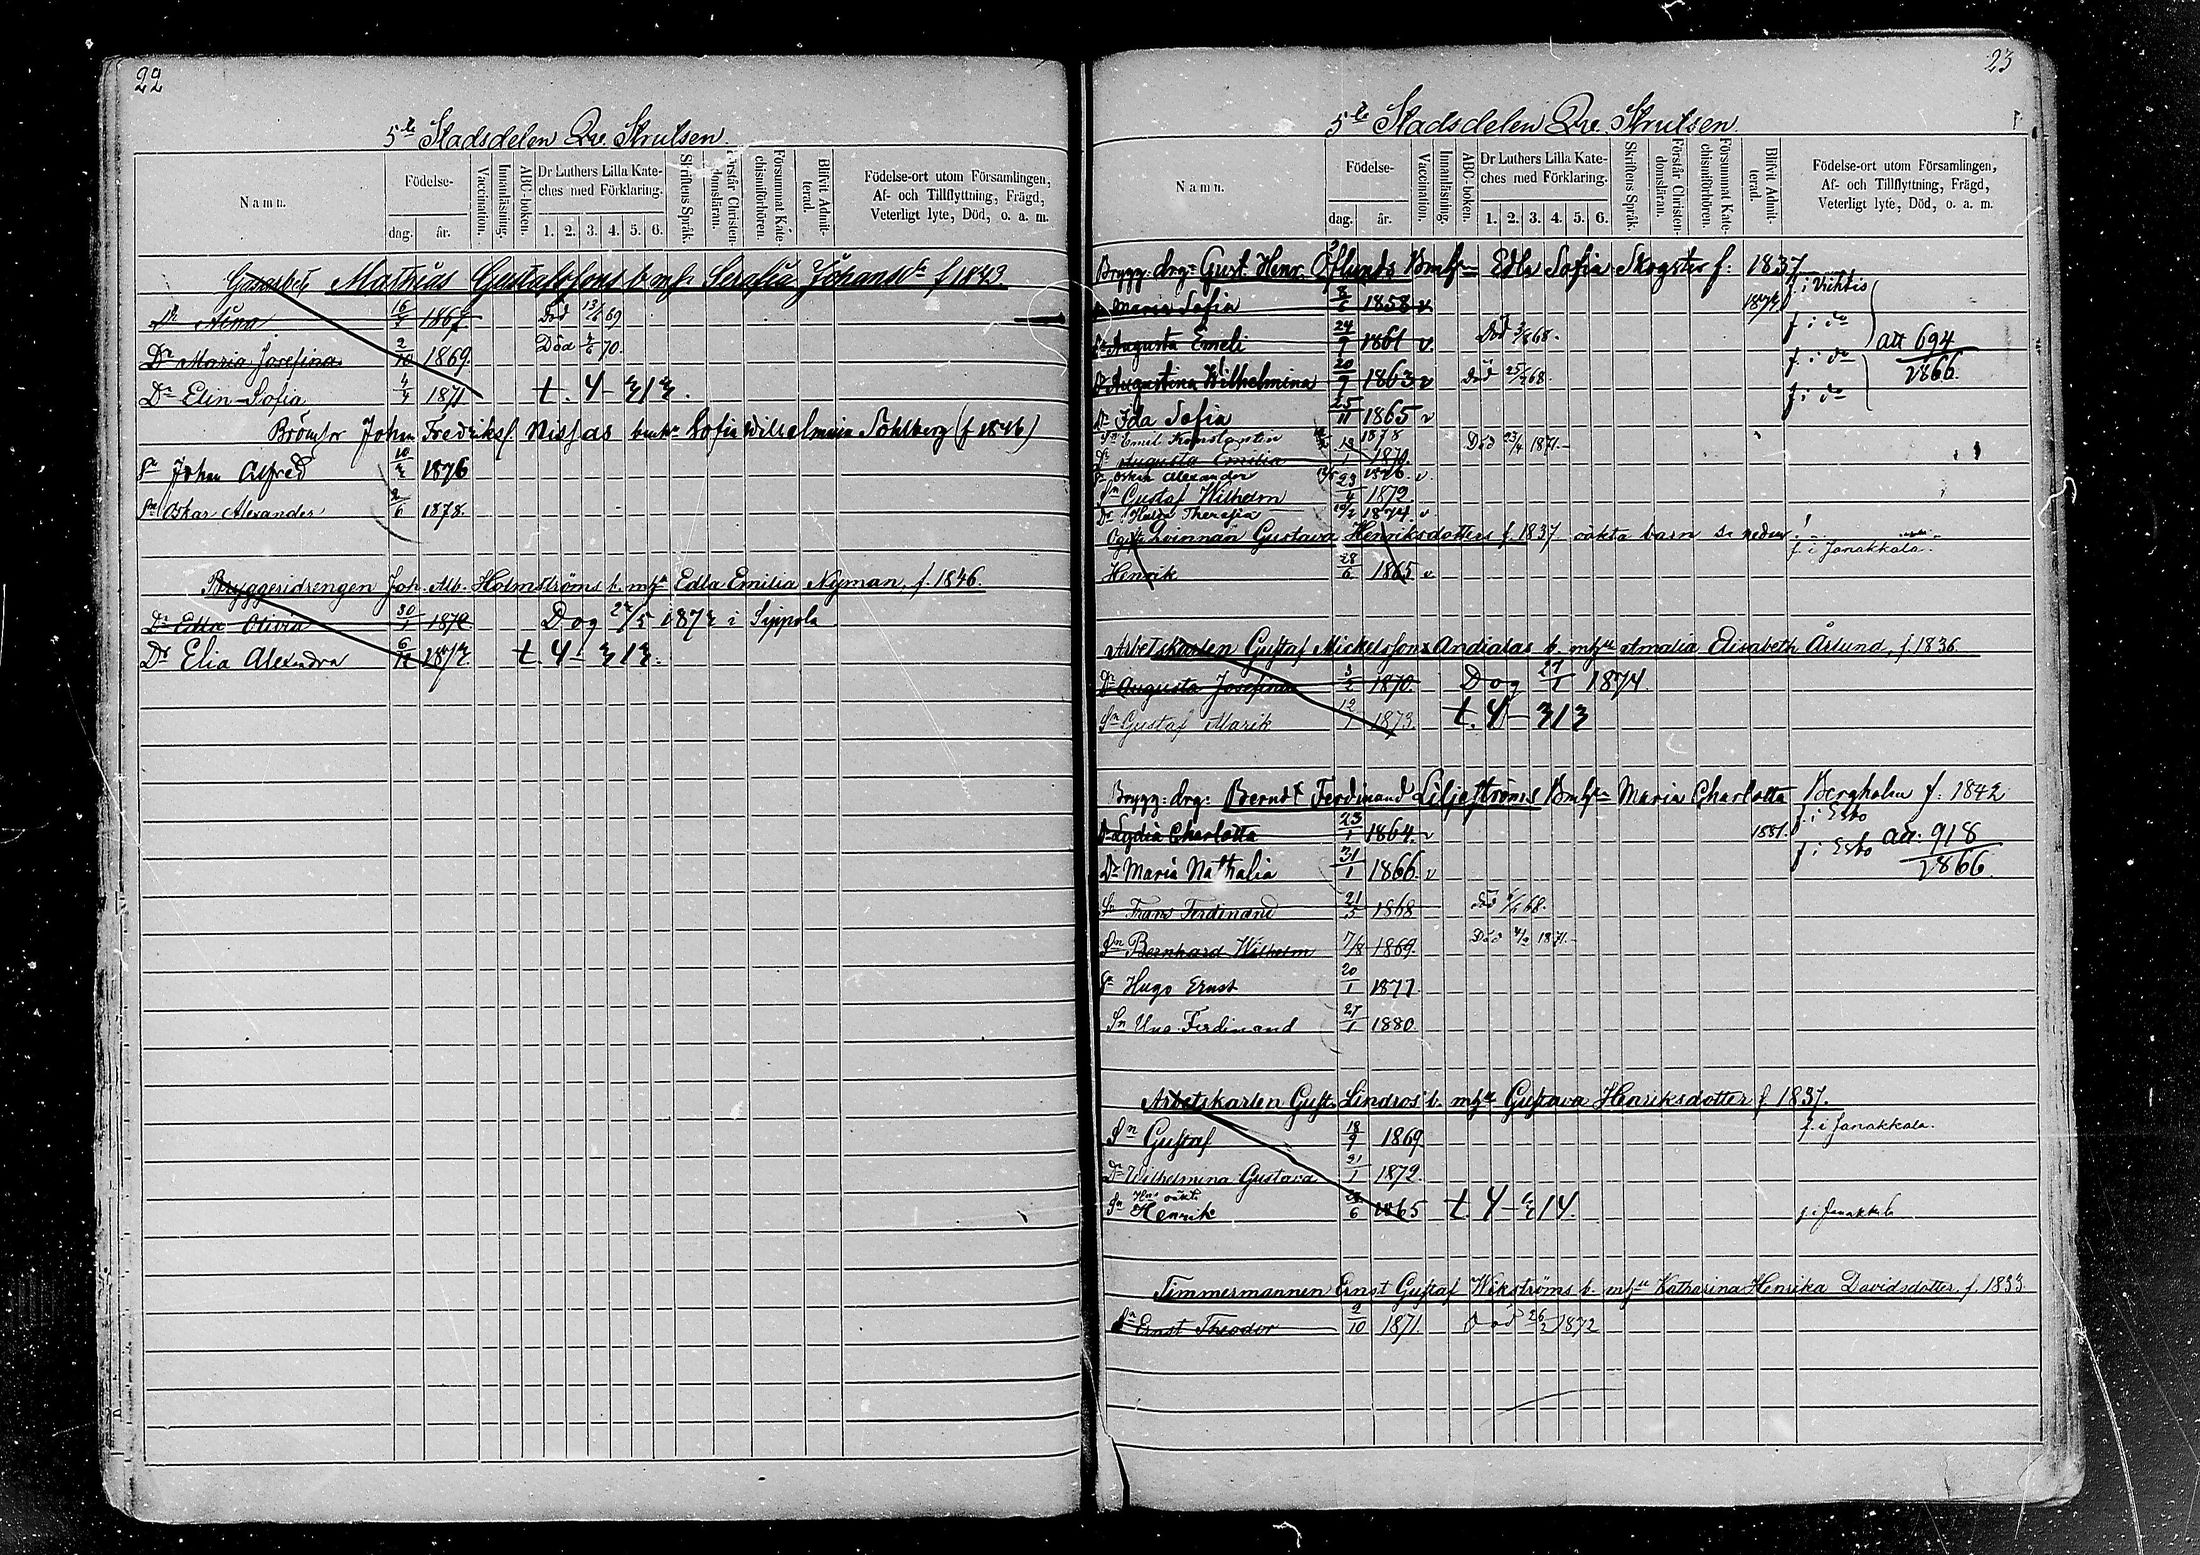 22
5te Stadsdelen Qv. Strutsen.
Namn.
Födelse-
dag.
år.
Vaccination.
Innanläsning.
ABC-boken.
Dr Luthers Lilla Kate-
ches med Förklaring.
1. 2. 3. 4. 5. 6.
Skriftens Språk.
Förstår Christen-
domsläran.
Försummat Kate-
chismiförhören.
Blifvit Admit-
terad.
Födelse-ort utom Församlingen,
Af- och Tillflyttning, Frägd,
Veterligt lyte, Död, o. a. m.
Mathias Gustafssons b. m. h. Serafia Johansdr f 1843.
Dr Alma 16/7 1867 Död 13/6 69
Dr Maria Josefina 2/10 1869 Död 4/6 70.
Dr Elin Sofia 4/4 1871 t. 4 - 313.
Johan Fredrikss. Nissas Sofia Wilhelmina Sohlberg (f 1846)
Sn Johan Alfred 10/2 1876
Sn Oskar Alexander 2/6 1878.
Bryggeridrengen Joh. Alb. Holmströms b. m. hu Edla Emilia Nyman, f. 1846.
Dr Edla Olivia 30/1 1872 Dog 22/5 1872 i Sippola
Dr Elia Alexandra 6/12 1872. t. 4 - 313.
23
5te Stadsdelen Qv. Strutsen.
Namn.
Födelse-
dag.
år.
Vaccination.
Innanläsning.
ABC-boken.
Dr Luthers Lilla Kate-
ches med Förklaring.
1. 2. 3. 4. 5. 6.
Skriftens Språk.
Förstår Christen-
domsläran.
Försummat Kate-
chismiförhören.
Blifvit Admit-
terad.
Födelse-ort utom Församlingen,
Af- och Tillflyttning, Frägd,
Veterligt lyte, Död, o. a. m.
Brygg: drg: Gust. Henr. Öflunds Bmhu Edla Sofia Skogster f: 1837
f. i Vichtis
Maria Sofia 8/6 1858 v 1874 f: i do
Dr Augusta Emeli 24/9 1861 v. Död 3/3 68. f: i do att 694
1866.
Dr Augustina Wilhelmina 20/9 1863 v Död 25/3 68. f: i do
Dr Ida Sofia 25/11 1865 v
Sn Emil Konstantin 1878 Död 23/4 1871.
Dr Augusta Emilia 19/1 1870.
Sn Oskar Alexander 1876 v.
Sn Gustaf Wilhelm 23/4 1872.
Dr Hulda Theresia 1874. v
Ogifta Qvinnan Gustava Henriksdotters f. 1837 oäkta barn se nedan!
f. i Janakkala.
Henrik 28/6 1865 v
Arbetskarlen Gustaf Mickelssons Andialas b. m. hu Amalia Elisabeth Åslund, f. 1836
Dr Augusta Josefina 3/2 1870. Dog 27/1 1874.
Sn Gustaf Marik 12/1 1873. t. 4 - 313
Brygg: drg: Berndt Ferdinand Liljeströms Bmhu Maria Charlotta Bergholm f: 1842
f. i Esbo
Dr Lydia Charlotta 23/1 1864 v 1881. f: i Esbo att. 918
1866.
Dr Maria Nathalia 31/1 1866 v
Sn Frans Ferdinand 21/5 1868 Död 68.
Sn Bernhard Wilhelm 7/8 1869. Död 4/2 1871.
Sn Hugo Ernst 20/1 1877
Sn Uno Ferdinand 27/1 1880.
Arbetskarlen Gust. Lindros' b. m. hu Gustava Henriksdotter f. 1837.
f. i Janakkala.
Sn Gustaf 18/9 1869
Dr Wilhelmina Gustava 21/1 1872.
oäkta
Sn Henrik 28/6 1865 t. 4 - 314. f. i Janakkala
Timmermannen Ernst Gustaf Wikströms b. m. hu Katharina Henrika Davidsdotter f. 1833
Sn Ernst Theodor 9/10 1871. Död 26/2 1872